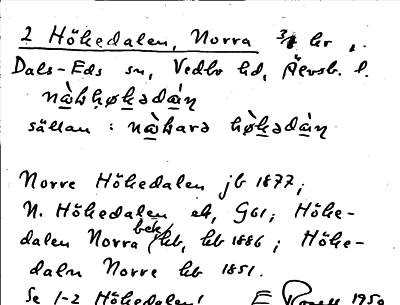 2 Hökedalen, Norra 3/8 hr
Dals-Eds sn, Vedbo hd, Älvsb. l.
nàḥḥøkədàṇ
sällan : nàharə hòkədàṇ
Norre Hökedalen jb 1877;
N. Hökedalen ek, G61; Höke-
bek
dalen Norra hb, kb 1886; Höke-
dalen Norre kb 1851.
Se 1-2 Hökedalen! E 1950